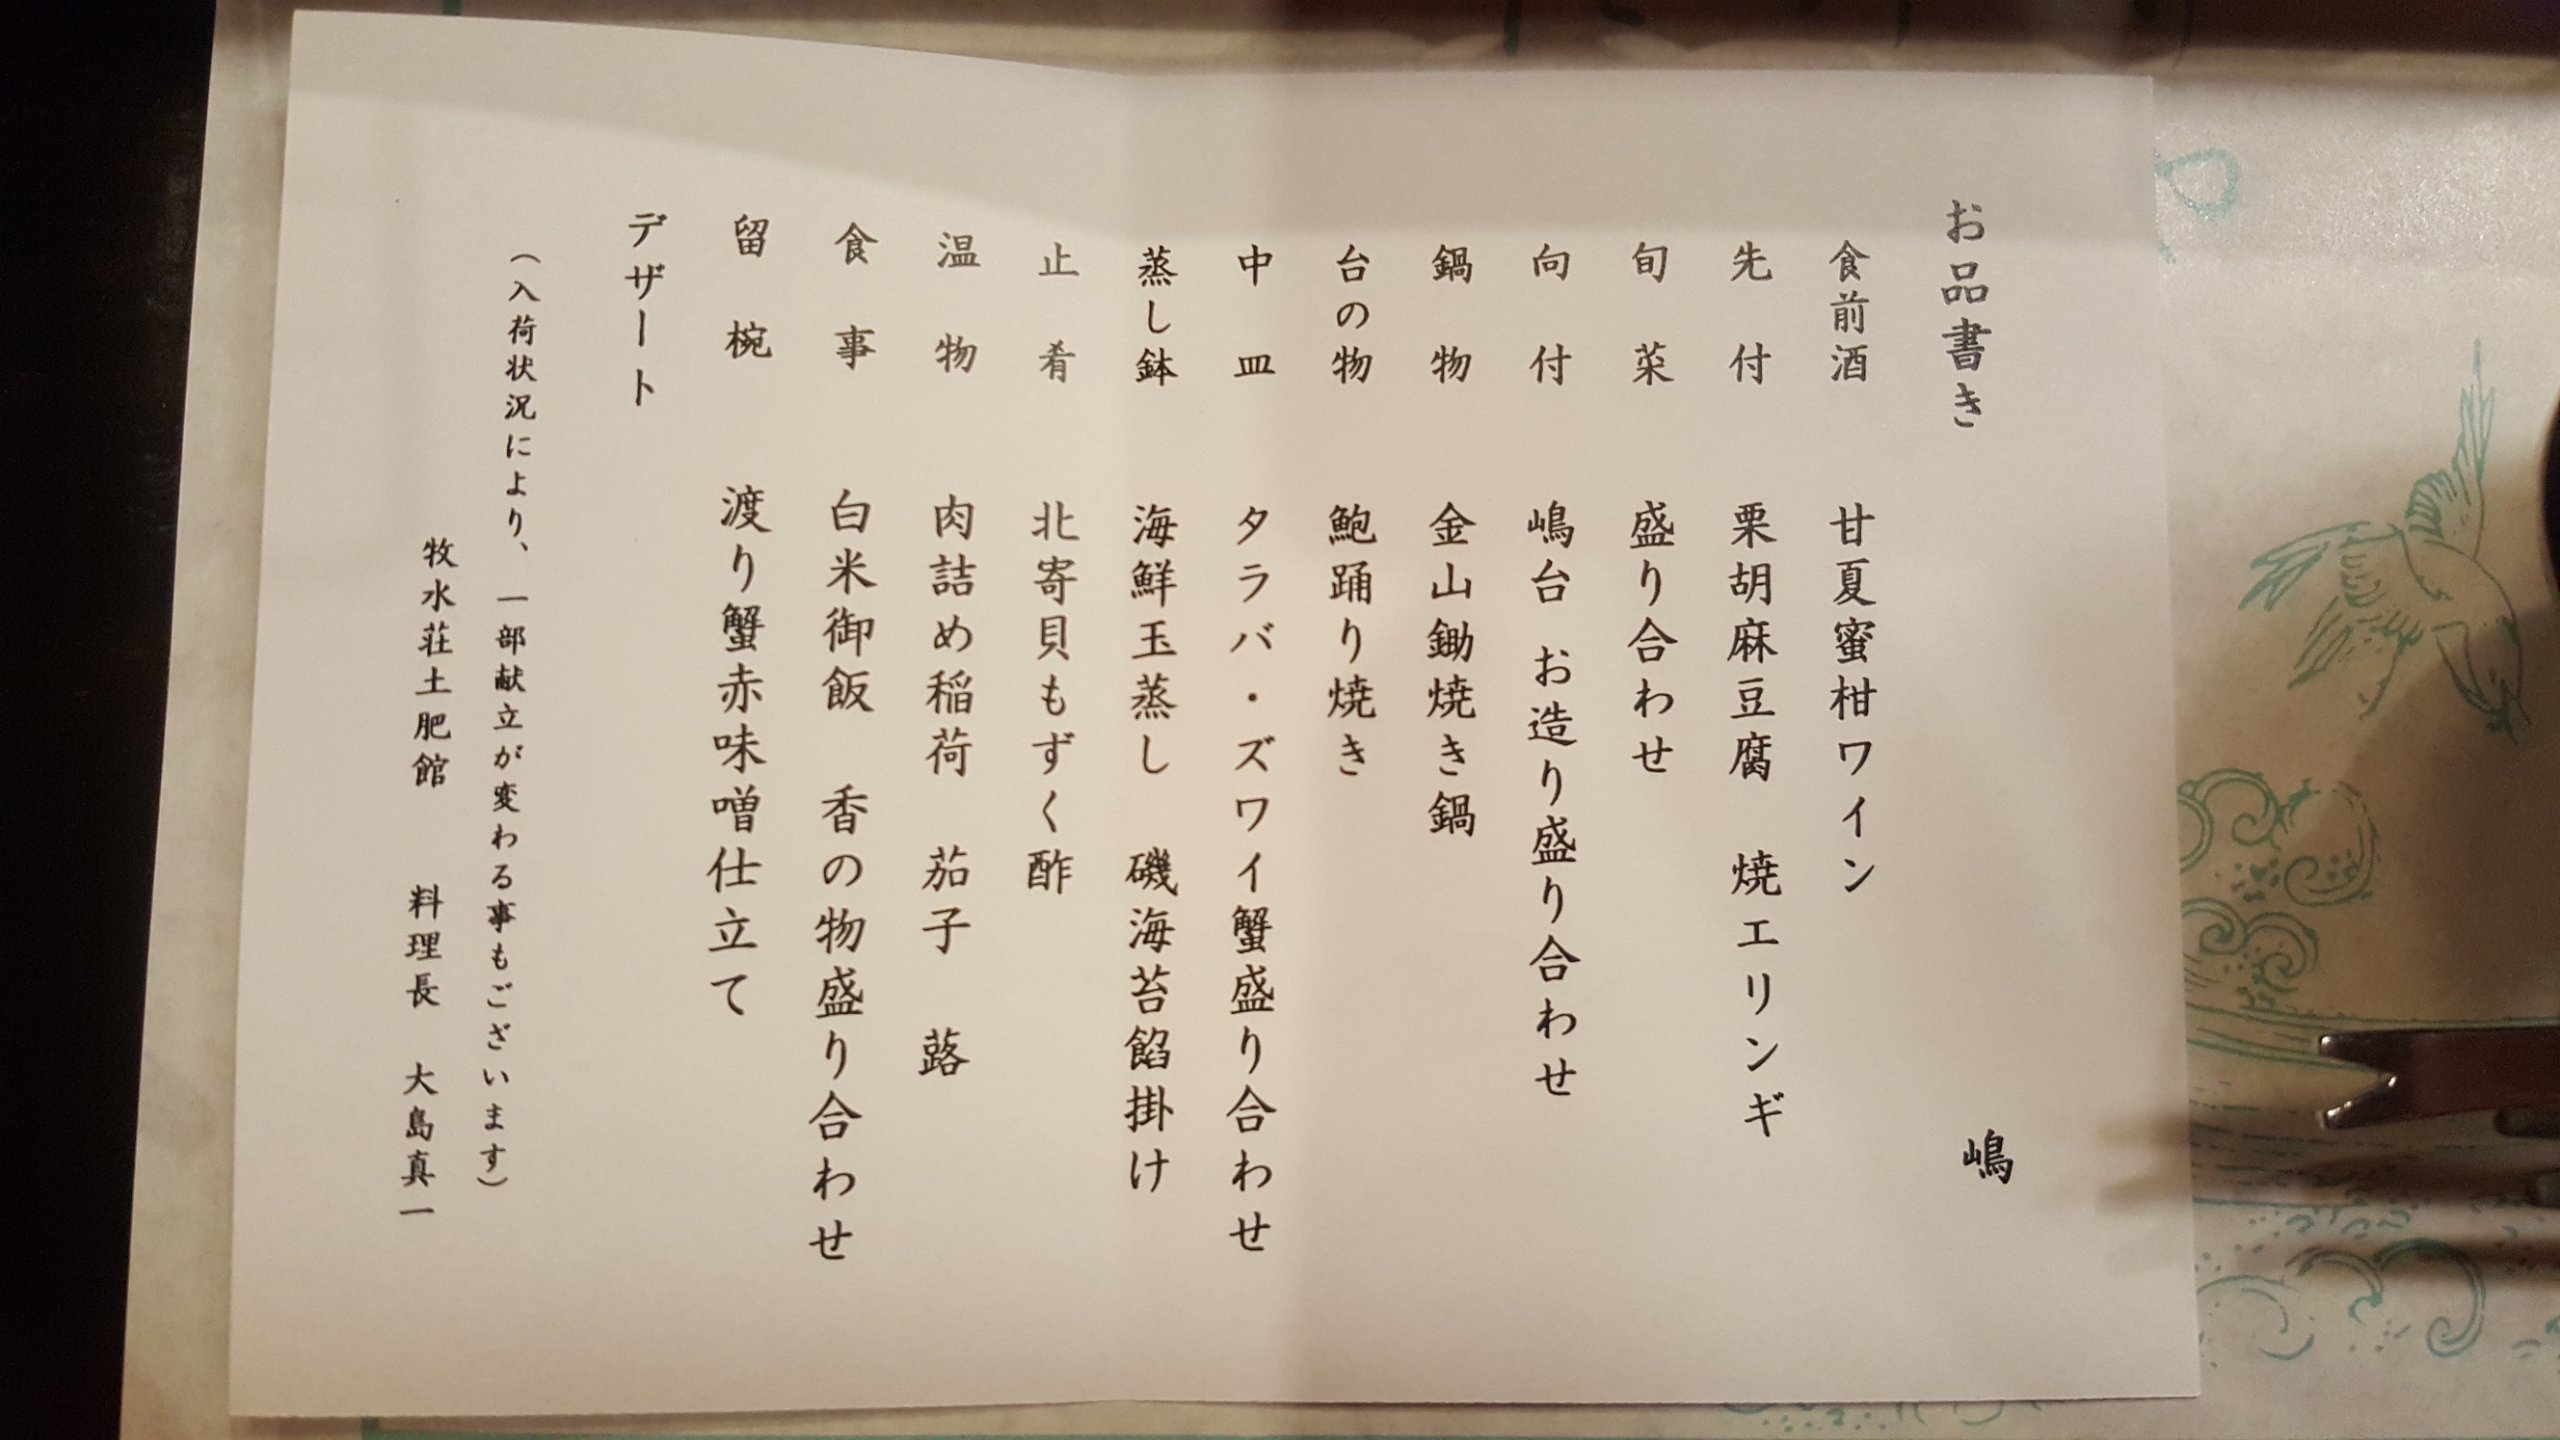 お品書き 嶋
食前酒 甘夏蜜柑ワイン
先付 栗胡麻豆腐 焼エリンギ
旬菜 盛り合わせ
向付 嶋台 お造り盛り合わせ
鍋物 金山鋤焼き鍋
台の物 鮑踊り焼き
中皿 タラバ・ズワイ蟹盛り合わせ
蒸し鉢 海鮮玉蒸し 磯海苔餡掛け
止肴 北寄貝もずく酢
温物 肉詰め稲荷 茄子 蕗
食事 白米御飯 香の物盛り合わせ
留椀 渡り蟹赤味噌仕立て
デザート
（入荷状況により、一部献立が変わる事もございます）
牧水荘土肥館 料理長 大島真一